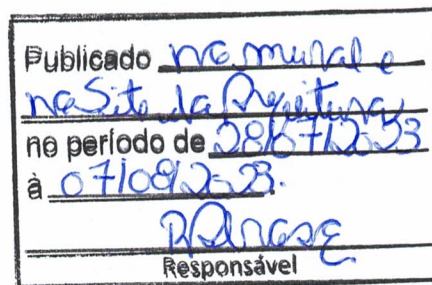 Publicado no mural e
no Site da Prefeitura
no período de 28/07/2023
à 07/08/2023.
Responsável